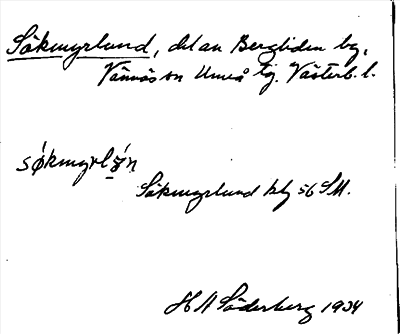 Sökmyrlund, del av Bergliden by,
Vännäs sn Umeå tg. Västerb. l.
søkmyrl n
Sökmyrlund kbj 56 SM.
H A Söderberg 1934